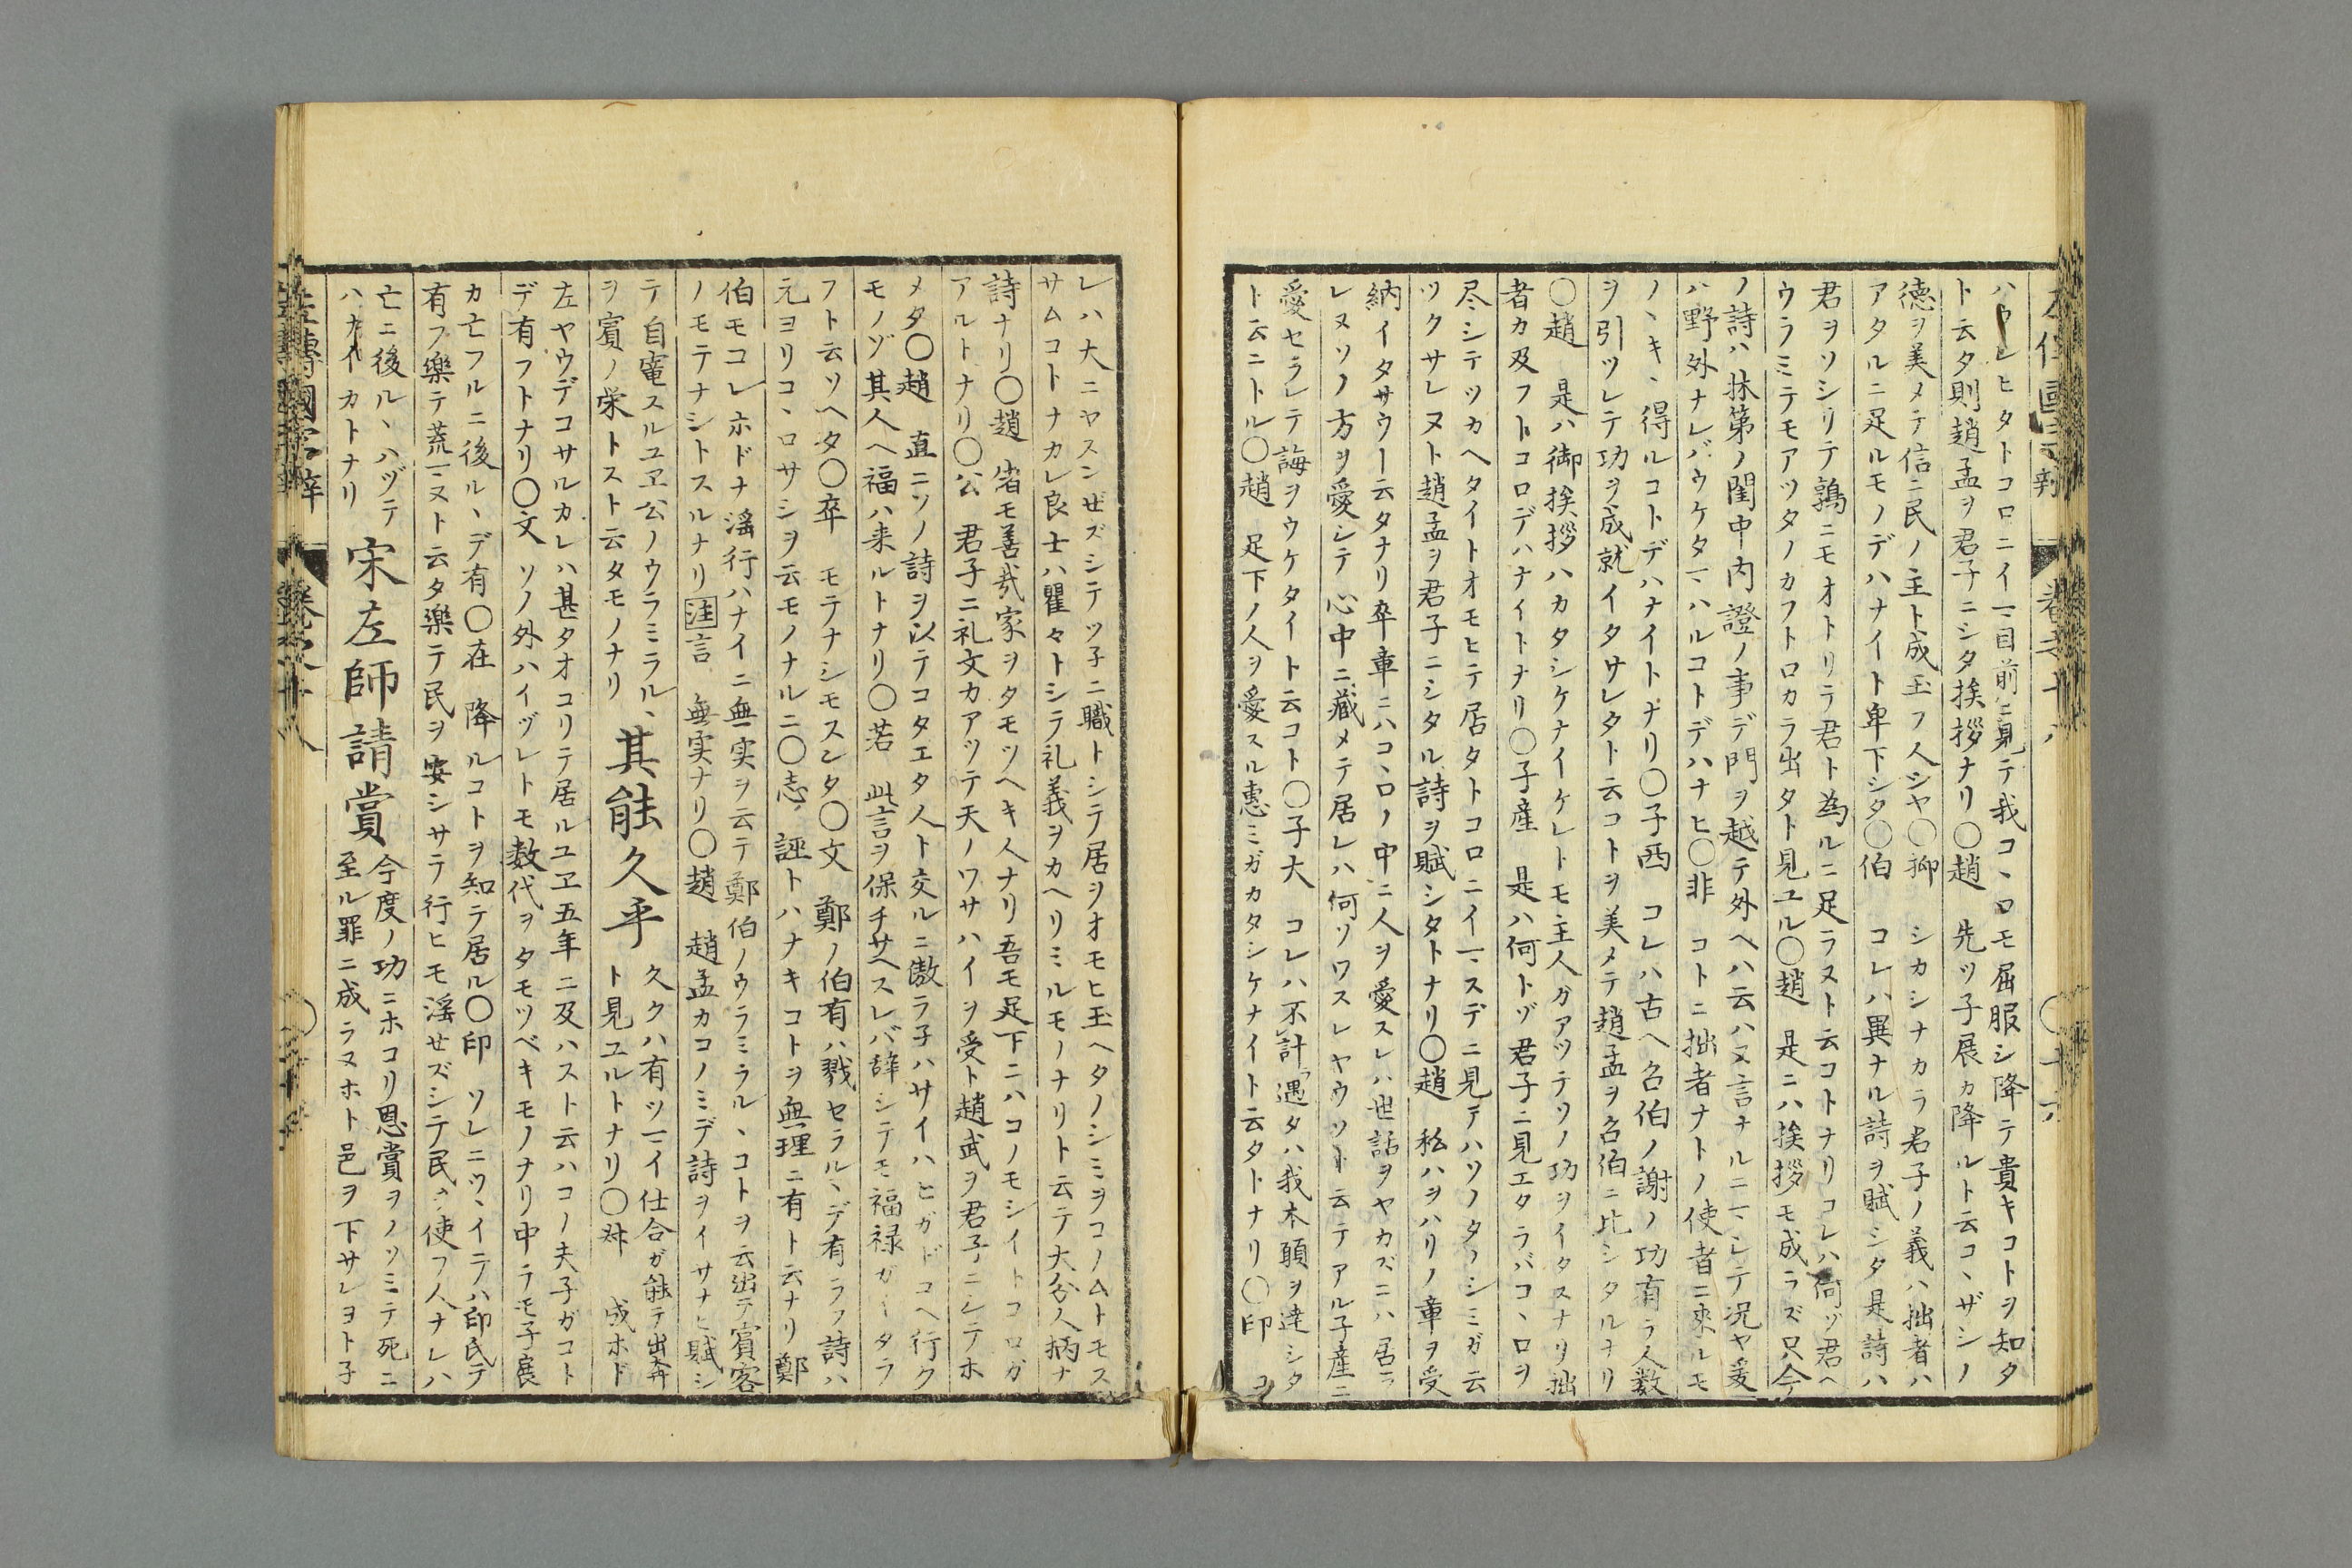 ハウレヒタトコロニイヿ目前ニ見テ我コヽロモ屈服シ降テ貴キコトヲ知タ
ト云タ則趙孟ヲ君子ニシタ挨拶ナリ〇趙　先ツ子展カ降ルト云コヽザシノ
徳ヲ美メテ信ニ民ノ主ト成玉フ人シヤ〇抑　シカシナカラ君子ノ義ハ拙者ハ
アタルニ足ルモノデハナイト卑下シタ〇伯　コレハ異ナル詩ヲ賦シタ是詩ハ
君ヲソシリテ鶉ニモオトリテ君ト為ルニ足ラヌト云コトナリコレハ何ゾ君ヘ
ウラミテモアツタノカフトロカラ出タト見ユル〇趙　是ニハ挨拶モ成ラズ只今
ノ詩ハ牀第ノ閨中内證ノ事デ門ヲ越テ外ヘハ云ハヌ言ナルニヿレテ况ヤ爰
ハ野外ナレバウケタヿハルコトデハナヒ〇非　コトニ拙者ナトノ使者ニ来ルモ
ノヽキヽ得ルコトデハナイトナリ〇子西　コレハ古ヘ召伯ノ謝ノ功有ラ人数
ヲ引ツレテ功ヲ成就イタサレタト云コトヲ美メテ趙孟ヲ召伯ニ比シタルナリ
〇趙　是ハ御挨拶ハカタシケナイケレトモ主人ガアツテソノ功ヲイタスナリ拙
者カ及フトコロデハナイトナリ〇子産　是ハ何トゾ君子ニ見エタラバコヽロヲ
尽シテツカヘタイトオモヒテ居タトコロニイヿスデニ見テハソノタノシミガ云
ツクサレヌト趙孟ヲ君子ニシタル詩ヲ賦シタトナリ〇趙　私ハヲハリノ章ヲ受
納イタサウト云タナリ卒章ニハコヽロノ中ニ人ヲ愛スレハ世話ヲヤカズニハ居ラ
レヌソノ方ヲ愛シテ心中ニ藏メテ居レハ何ソワスレヤウソト云テアル子産ニ
愛セラレテ誨ヲウケタイト云コト〇子大　コレハ不計遇タハ我本願ヲ達シタ
ト云ニトル〇趙　足下ノ人ヲ愛スル恵ミガカタシケナイト云タトナリ〇印　コ
レハ大ニヤスンぜズシテツ子ニ職トシテ居ヲオモヒ玉ヘタノシミヲコノムトモス
サムコトナカレ良士ハ瞿々トシラ礼義ヲカヘリミルモノナリト云テ大谷人柄ナ
詩ナリ〇趙　偖モ善哉家ヲタモツヘキ人ナリ吾モ足下ニハコノモシイトコロガ
アルトナリ〇公　君子ニ礼文カアツテ天ノワサハイヲ受ト趙武ヲ君子ニシテホ
メタ〇趙　直ニソノ詩ヲ以テコタエタ人ト交ルニ傲ラ子ハサイハヒガドコヘ行ク
モノゾ其人ヘ福ハ来ルトナリ〇若　此言ヲ保チサヘスレバ辞シテモ福禄ガータラ
フト云ソヘタ〇卒　モテナシモスンタ〇文　鄭ノ伯有ハ戮セラルヽデ有ラフ詩ハ
元ヨリコヽロサシヲ云モノナルニ〇志　誣トハナキコトヲ無理ニ有ト云ナリ鄭
伯モコレホドナ淫行ハナイニ無実ヲ云テ鄭伯ノウラミラルヽコトヲ云出テ賓客
ノモテナシトスルナリ注言　無実ナリ〇趙　趙孟カコノミデ詩ヲイサナヒ賦シ
テ自竃スルユヱ公ノウラミラルヽ
ヲ賓ノ栄トスト云タモノナリ
其能久乎
久クハ有ツヿイ仕合ガ能テ出奔
ト見ユルトナリ〇叔　成ホド
左ヤウデコサルカレハ甚タオコリテ居ルユヱ五年ニ及ハスト云ハコノ夫子ガコト
デ有フトナリ〇文　ソノ外ハイヅレトモ数代ヲタモツベキモノナリ中ラモ子展
カ亡フルニ後ルヽデ有〇在　降ルコトヲ知テ居ル〇印　ソレニツヽイテハ印氏テ
有フ樂テ荒ヿヌト云タ樂テ民ヲ安シサラ行ヒモ淫せズシテ民ヲ使フ人ナレハ
亡ニ後ルヽハヅテ
ハナイカトナリ
宋左師請賞
今度ノ功ニホコリ恩賞ヲノソミテ死ニ
至ル罪ニ成ラヌホト邑ヲ下サレヨト子
左傳國字辯　巻之十八